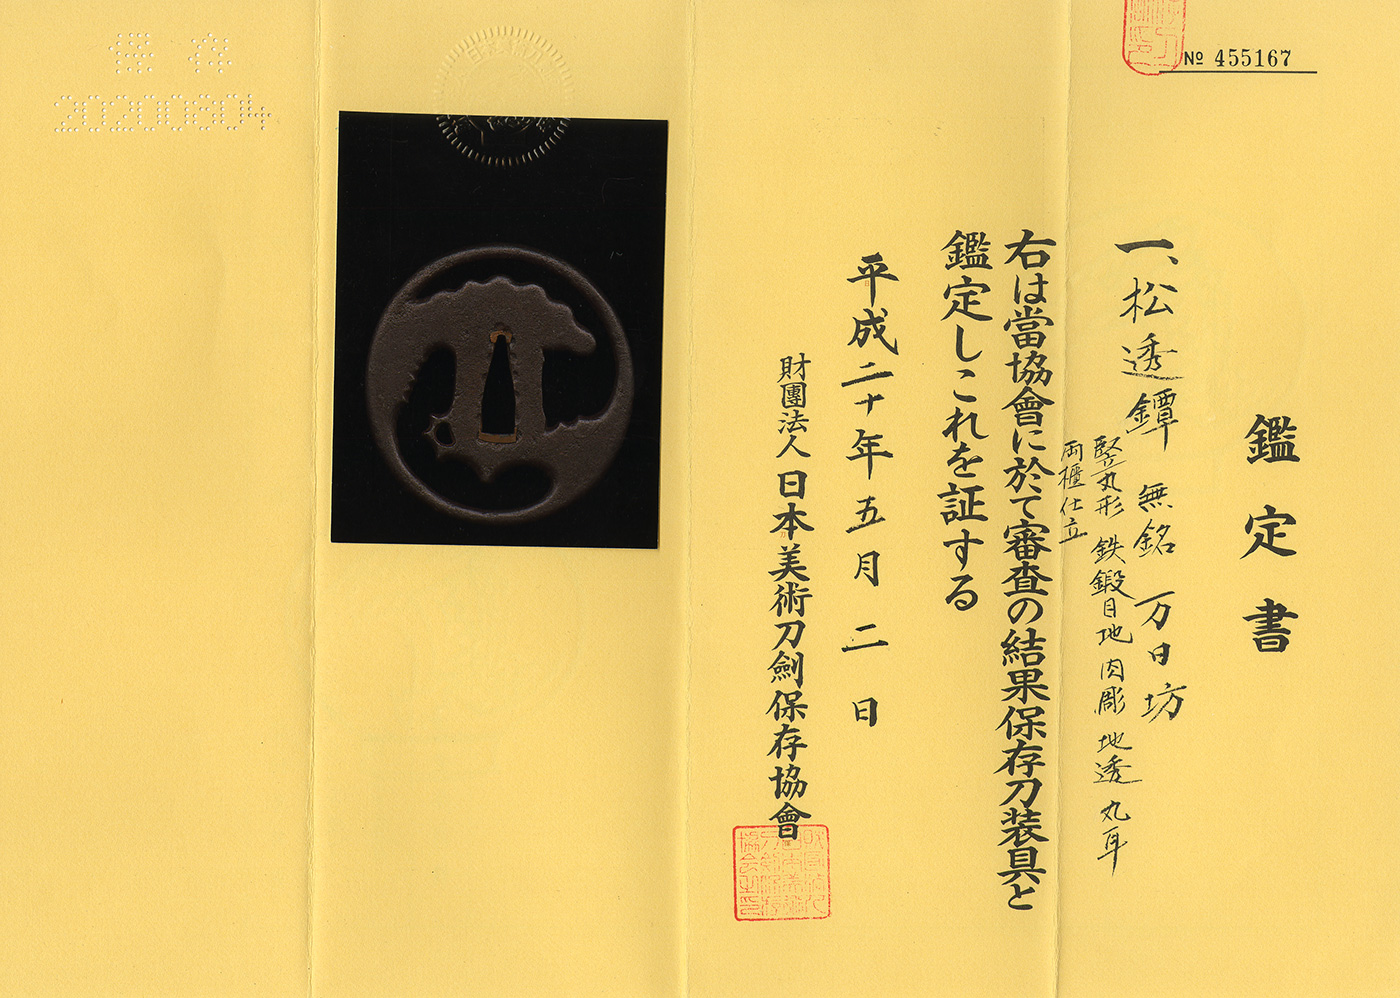 № 455167
鑑定書
一、松透鐔 無銘 万日坊
竪丸形 鉄鍛目地 肉彫地透 丸耳
両櫃仕立
右は當協會に於て審査の結果保存刀装具と
鑑定しこれを証する
平成二十年五月二日
財團法人日本美術刀劍保存協會
保存
20200804